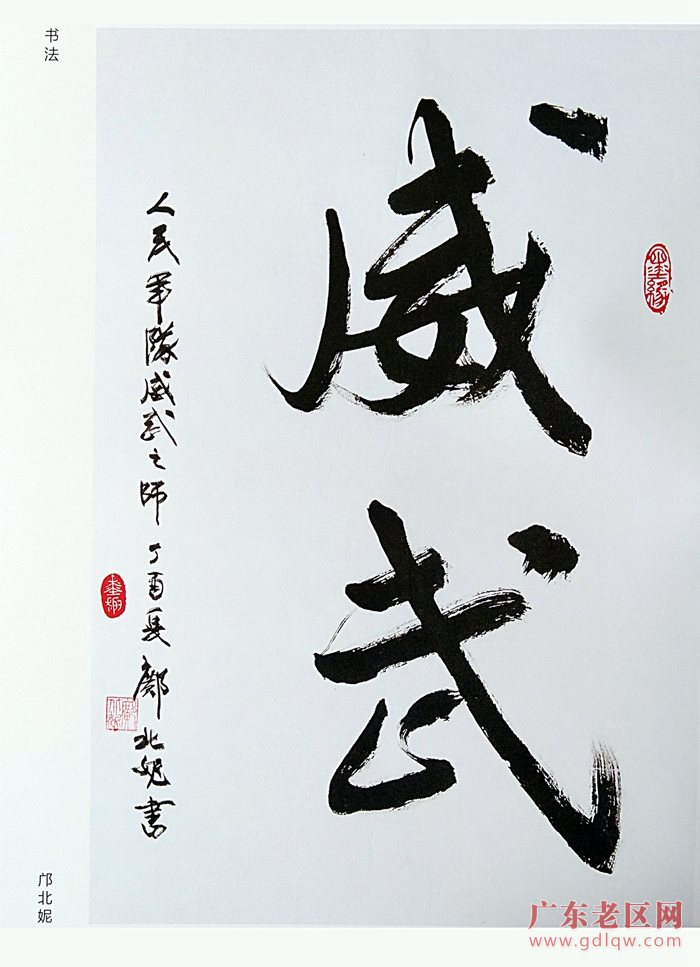 书法
威武
人民軍隊威武之師 丁酉夏 鄺北妮書
墨缘
邝北妮
广东老区网
www.gdlqw.com